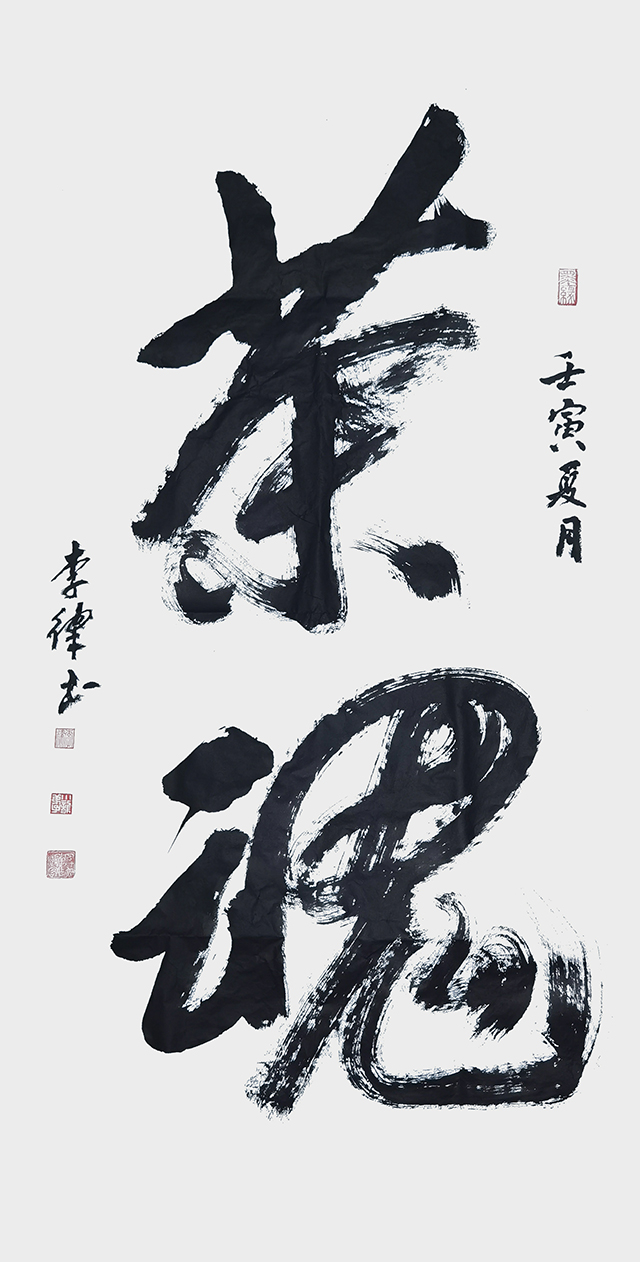 壬寅夏月
茶魂
李律书